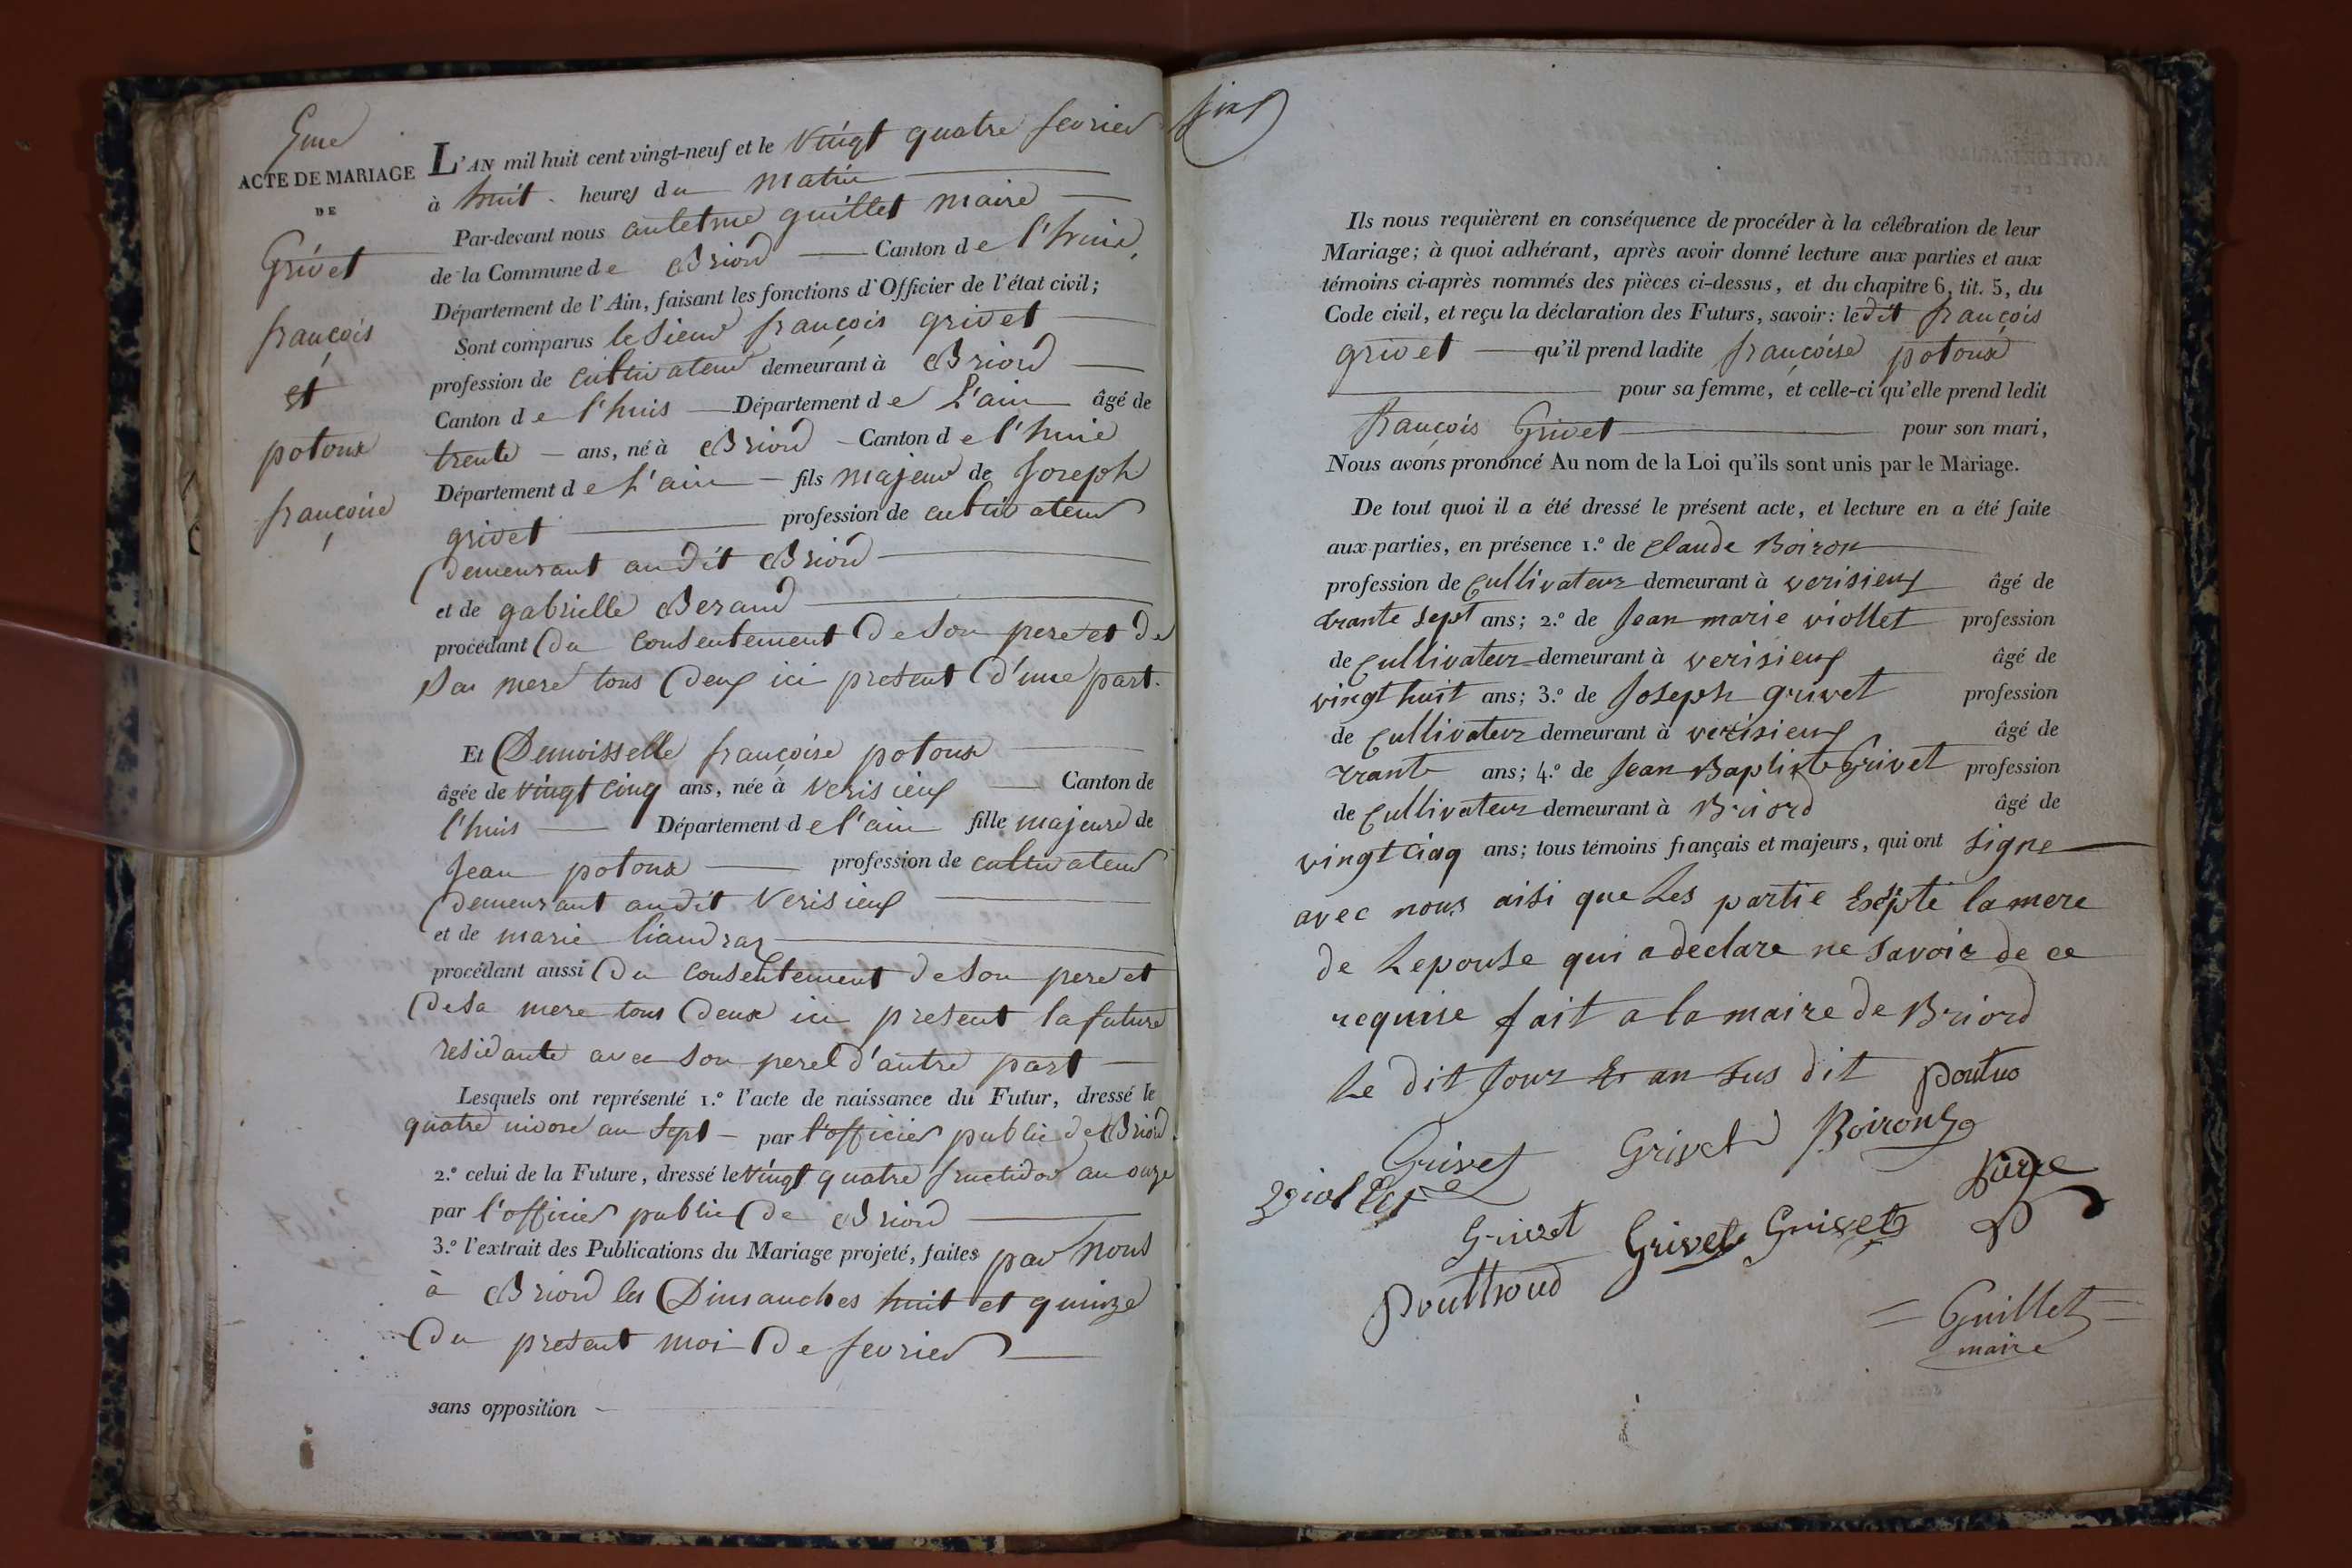 5me
ACTE DE MARIAGE
DE
Grivet
françois
et
potoux
françoise
L'AN mil huit cent vingt-neuf et le vingt quatre fevrier
à huit heures du matin
Par-devant nous antelme guillet maire
de la Commune de Briord Canton de l'huis,
Département de l'Ain, faisant les fonctions d'Officier de l'état civil;
Sont comparus le sieur françois grivet
profession de cultivateur demeurant à Briord
Canton de l'huis Département de L'ain âgé de
trente ans, né à Briord Canton de l'huie
Département de L'ain fils majeur de Joseph
grivet profession de cultivateur
demeurant audit Briord
et de gabrielle Beraud
procédant du consentement de son pere et de
sa mere tous deux ici present d'une part.
Et Demoisselle françoise potoux
âgée de vingt cinq ans, née à verisieux Canton de
l'huis Département de l'ain fille majeure de
Jean potoux profession de cultivateur
demeurant audit Verisieux
et de marie liaudraz
procédant aussi du consentement de son pere et
de sa mere tous deux ici present la future
residante avec son pere d'autre part
Lesquels ont représenté 1.º l'acte de naissance du Futur, dressé le
quatre nivose an sept par l'officier public de Briord.
2.º celui de la Future, dressé le vingt quatre fructidor an onze
par l'officier public de Briord
3.º l'extrait des Publications du Mariage projeté, faites par nous
à Briord les Dimanches huit et quinze
du present moi de fevrier
sans opposition
Ils nous requièrent en conséquence de procéder à la célébration de leur
Mariage; à quoi adhérant, après avoir donné lecture aux parties et aux
témoins ci-après nommés des pièces ci-dessus, et du chapitre 6, tit. 5, du
Code civil, et reçu la déclaration des Futurs, savoir: ledit françois
grivet qu'il prend ladite françoise potoux
pour sa femme, et celle-ci qu'elle prend ledit
françois Grivet pour son mari,
Nous avons prononcé Au nom de la Loi qu'ils sont unis par le Mariage.
De tout quoi il a été dressé le présent acte, et lecture en a été faite
aux parties, en présence 1.º de Claude Boiron
profession de Cullivateur demeurant à verisieux âgé de
trante sept ans; 2.º de Jean marie viollet profession
de Cullivateur demeurant à verisieux âgé de
vingt huit ans; 3.º de Joseph grivet profession
de Cullivateur demeurant à verisieux âgé de
trante ans; 4.º de Jean Baptiste Grivet profession
de Cullivateur demeurant à Briord âgé de
vingt cinq ans; tous témoins français et majeurs, qui ont signe
avec nous aisi que Les partie Exepte la mere
de Lepouse qui a declare ne savoir de ce
requise fait a la maire de Briord
Le dit Jour Et an sus dit poutuo
Grivet Grivet Boiron
viollet
Grivet Grivet Grivet
Guillet
maire